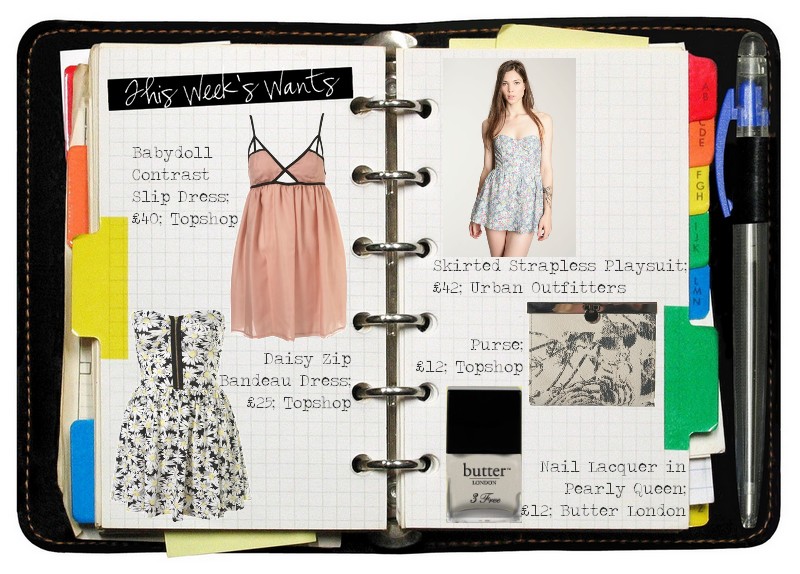 This Week's Wants
Babydoll
Contrast
Slip Dress;
£40; Topshop
Daisy Zip
Bandeau Dress;
£25; Topshop
Skirted Strapless Playsuit;
£42; Urban Outfitters
Purse;
£12; Topshop
butter™
LONDON
3 Free
Nail Lacquer in
Pearly Queen;
£12; Butter London
AB
CDE
FGH
IJK
LMN